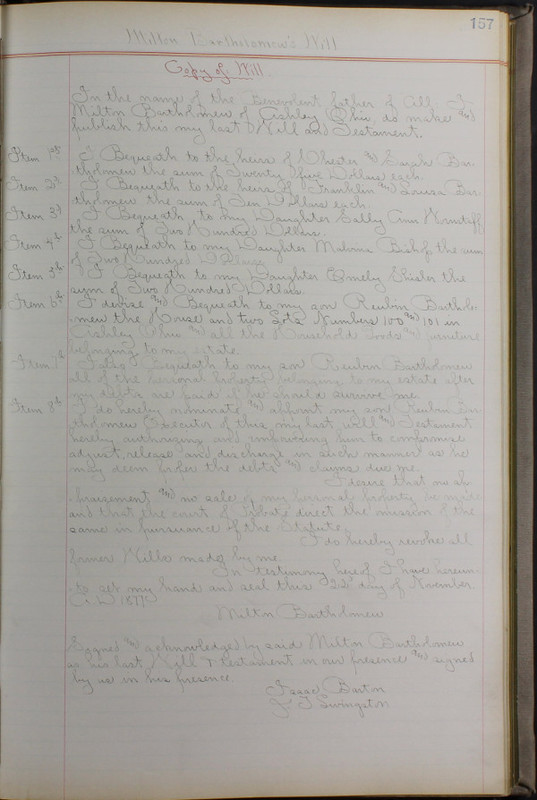 157
Milton Bartholomew's Will
Copy of Will
In the name of the Benevolent father of all, I
Milton Bartholomew of Ashley Ohio, do make and
publish this my last Will and Testament.
Item 1st I Bequeath to the heirs of Chester and Sarah Bar-
tholmew the sum of Twenty five Dollars each.
Item 2d I Bequeath to the heirs of Franklin and Louisa Bar-
tholmew the sum of Ten Dollars each.
Item 3d I Bequeath, to my Daughter Sally Ann
the sum of Two Hundred Dollars.
Item 4th I Bequeath to my Daughter Malvina Bishop the sum
of Two Hundred Dollars
Item 5th I Bequeath to my Daughter the
sum of Two Hundred Dollars.
Item 6th I devise and Bequeath to my son Reubin Barthol-
mew the House and two Lots Numbers 100 and 101 in
Ashley Ohio and all the Household Goods and furniture
belonging to my estate.
Item 7th I also Bequeath to my son Reubin Bartholmew
all of the personal property belonging to my estate after
my debts are paid if he should survive me.
Item 8th I do hereby nominate and appoint my son Reubin Bar-
tholmew Executor of this my last will and Testament
hereby authorizing and empowering him to compromise
adjust, release and discharge in such manner as he
may deem proper the debts and claims due me.
I desire that no ap-
praisement and no sale of my personal property be made
and that the court of Probate direct the omission of the
same in pursuance of the Statute.
I do hereby revoke all
former Wills made by me.
In testimony hereof I have hereun-
to set my hand and seal this 22d day of November
A.D. 1877
Milton Bartholomew
Signed and acknowledged by said Milton Bartholomew
as his last Will & testament in our presence and signed
by us in his presence.
Isaac Barton
Livingston